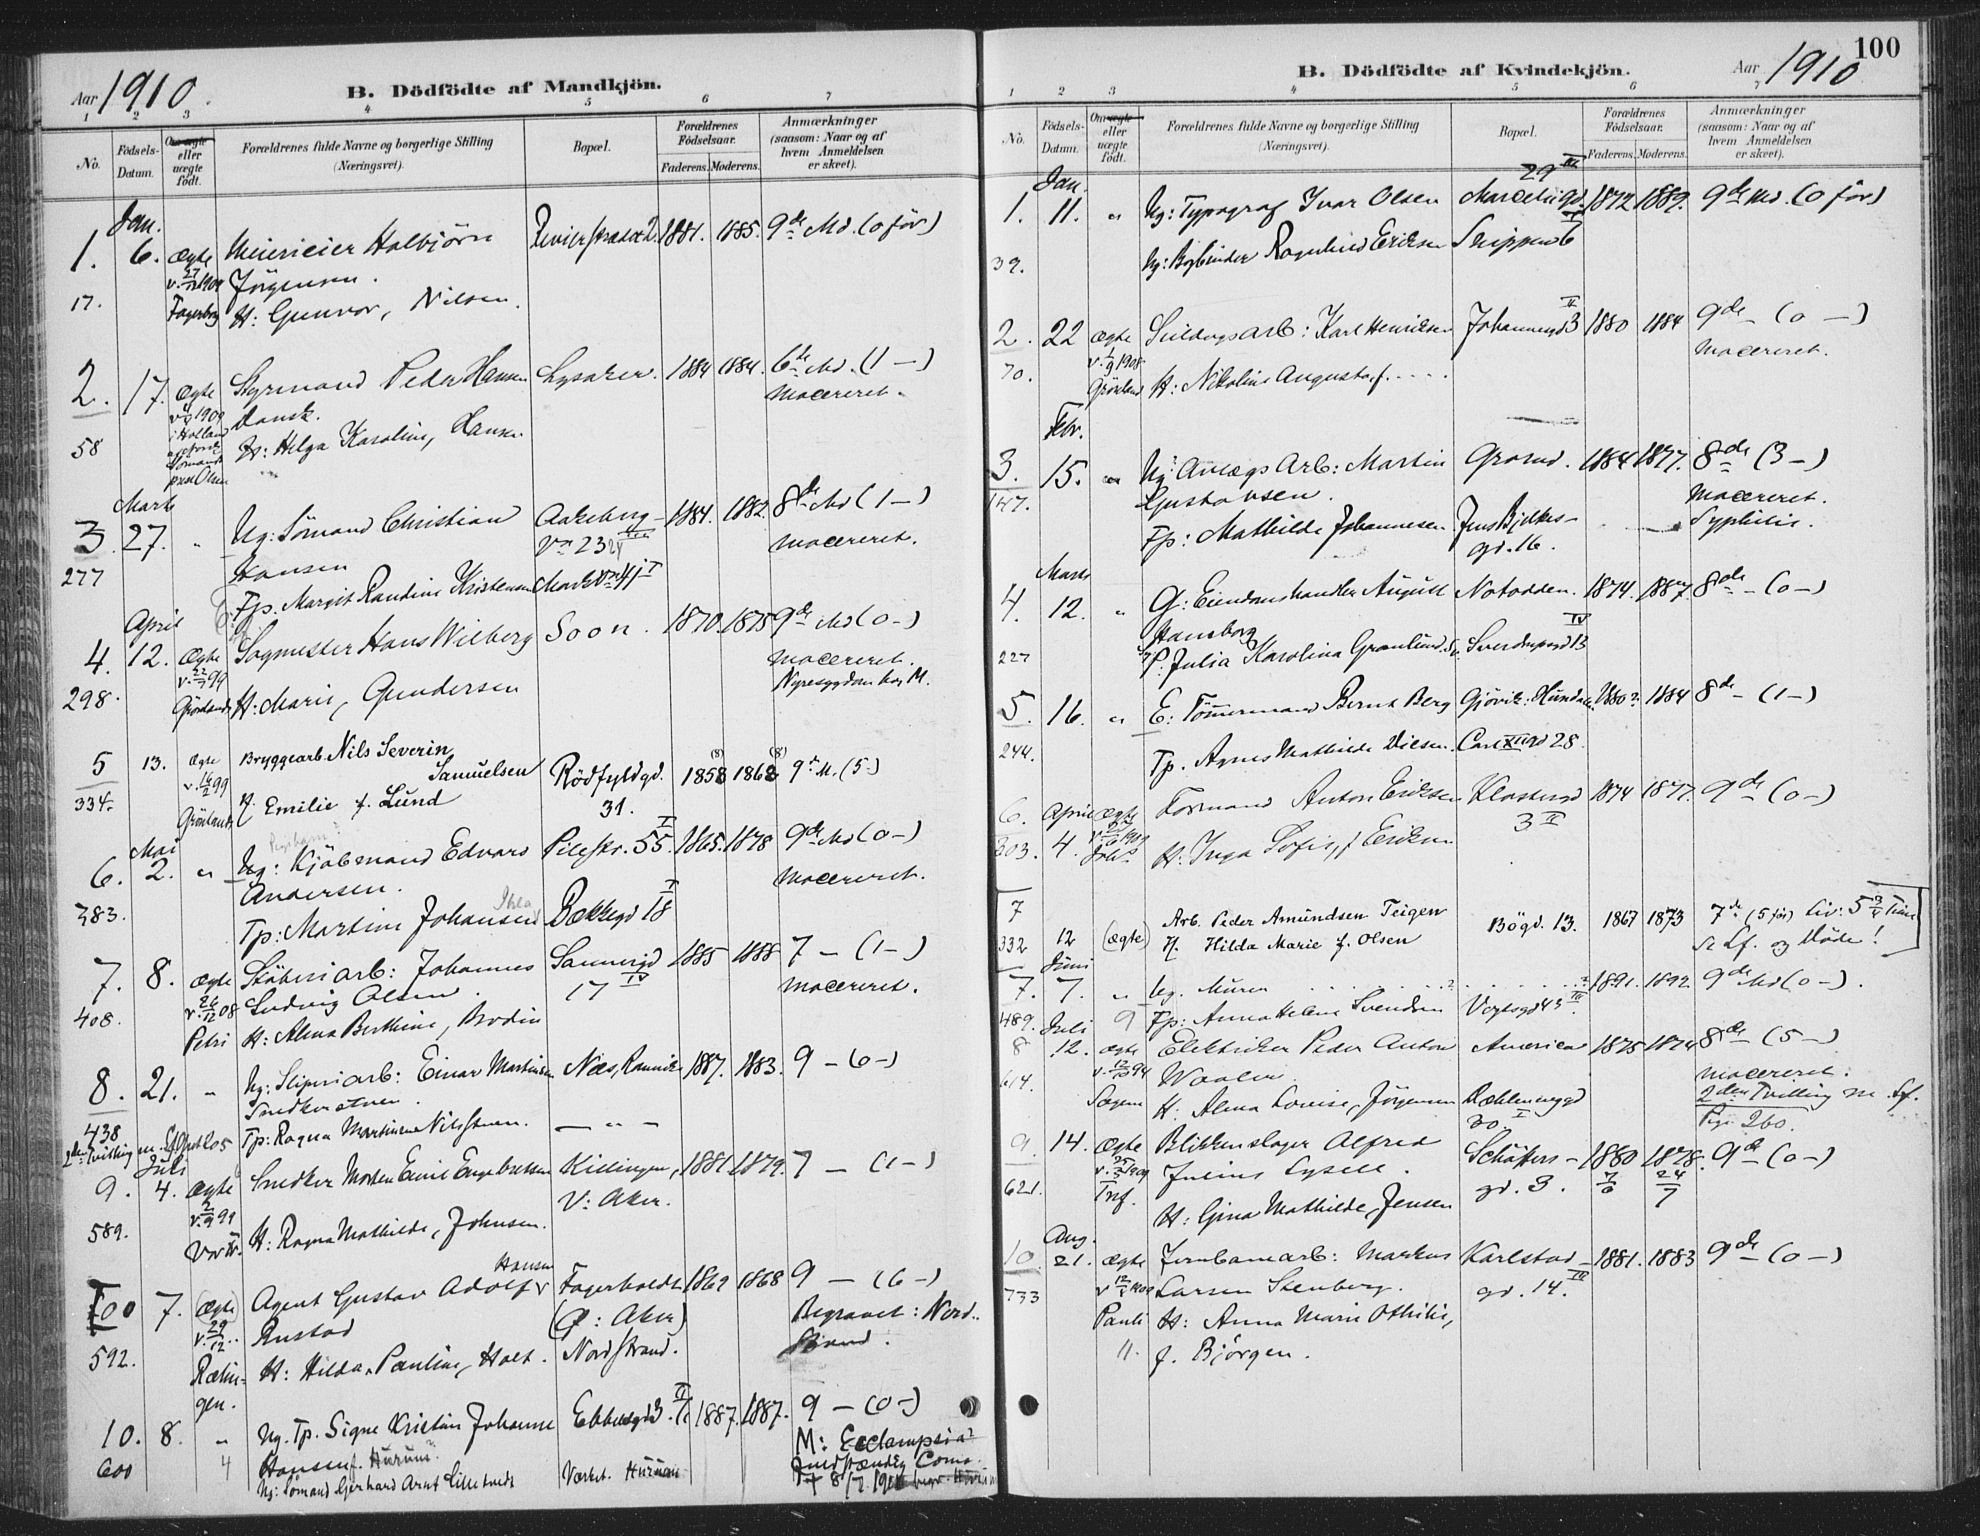 Aar 1910.
B. Dödfödte af Mandkjön.
1 2 3 4 5 6 7
No.
Födsels-Datum.
Om ægte eller uægte födt.
Forældrenes fulde Navne og borgerlige Stilling (Næringsvei).
Bopæl.
Forældrenes Födselsaar.
Faderens. Moderens.
Anmærkninger (saasom: Naar og af hvem Anmeldelsen er skeet).
Jan.
1. 6. Ægte Meierieier Halbjörn 1881. 1885. 9de Md. (0 før)
17. Fagerborg Jörgensen.
H: Gunvor, Nilsen.
2. 17. Ægte Styrmand Peder Hansen Lysaker. 1884 1884. 6te Md. (1 -)
1909 dansk. macereret.
i Holland
58 H: Helga Karoline, Hansen
Marts
3 27. " Ug: Sömand Christian Aakeberg- 1884. 1882. 8de Md (1 -)
Hansen Vn 23 macereret.
277 Fp. Margit Randine Kristensen Markvn 41 I
April
4. 12. Ægte Sagmester Hans Wilberg Soon. 1870. 1875 9de Md (0 -)
macereret.
Nyresygdom hos M.
298. Grönlands H: Marie, Gundersen
5 13. Ægte Bryggearb Nils Severin
Samuelsen Rödfyldgd. 1858 1868 9de M. (5 -)
334. Grönlands H. Emilie f. Lund 31.
Mai
6. 2. " Ug: Kjöbmand Edvard Pilestr. 55. I 1865. 1878 9de Md (0 -)
Andersen. macereret.
383. Fp: Martine Johansen Bakkegd 18 I
7. 8. Ægte Stöberiarb: Johannes Sannergd 1885 1888 7 - (1 -)
Ludvig Olsen. 17 IV macereret.
408. Petri H: Alma Berthine, Brodin
8. 21. " Ug: Sliperiarb: Einar Martinsen Næs, Romerike 1887. 1883. 9 - (0 -)
438 Fp: Ragna Martinsen - " -
2den Tvilling m.
Juli
9. 4. Ægte Snedker Morten Emil Engebretsen Killingen, 1881. 1879. 7 - (1 -)
V: Aker.
589. Vor Fr. H: Ragna Mathilde, Johnsen.
Hansen
100 7. (Ægte) Agent Gustav Adolf Fagerholdt 1869 1868 9 - (6 -)
Rustad (P: Aker) Begravet: Nord-
592. Rælin- H: Hilda Pauline, Holt. Nordstrand. strand.
gen.
10. 8. " Ug. Tp. Signe Kristine Johanne Ebbesgd 3. II 1887. 1887. 9 - (0 -)
600 4 Hansen f. Hurum M: Ecclampsia
Ug: Sömand Gerhard Arnt Værket. Hurum Coma.
Aar 1910
100
B. Dödfödte af Kvindekjön.
1 2 3 4 5 6 7
No.
Födsels-Datum.
Om ægte eller uægte födt.
Forældrenes fulde Navne og borgerlige Stilling (Næringsvei).
Bopæl.
Forældrenes Födselsaar.
Faderens. Moderens.
Anmærkninger (saasom: Naar og af hvem Anmeldelsen er skeet).
Jan. 29 III
1. 11. " Ug: Typograf Ivar Olsen 1872 1889. 9de Md. (0 før)
39. Ug: Bogbinder Ragnhild Eriksen Skippergd 6
2. 22 Ægte Karl Henriksen Johannesgd 3 II 1880 1884 9de - (0 -)
v. 1908 macereret.
70. Grönland H. Nikoline Augusta f. . . . .
Febr.
3. 15. " Ug Anlægsarb: Martin Grorud. 1884 1877. 8de (3 -)
147. Gustavsen. macereret.
Fp: Mathilde Johannesen Jens Bjelkes- Syphilis.
gd. 16.
Marts
4. 12. " G: Eiendomshandler August Notodden. 1874. 1887 8de - (0 -)
Hansborg
227 P. Julia Karolina Granlund. Sv. Sverdrupsgd 13 IV
5. 16. " E: Tömmermand Bernt Berg Gjövik: Hunndalen 1880? 1884 8de - (1 -)
244. Fp. Agnes Mathilde Nilsen. Carl XII gd 28.
6. April Ægte Formand Anton Eriksen Klostergd 1874 1877. 9de (0 -)
303. 4. H. Inga Sofie, f Eriksen 3 II
7 Arb. Peder Amundsen Teigen Bögd. 13. 1867 1873 7de (5 før) Liv: 5
332 12 (Ægte) H. Hilda Marie f. Olsen Se Lf. og Døde!
Juni
7. 7. " Ug. Murer . . . . . 1891. 1892. 9de Md (0 -).
489. 9 Fp: Anna Helene Svendsen Vogtsgd 43 III.
Juli
8 12. Ægte Elektriker Peder Anton America 1875 1874 8de - (5 -)
v. 94 Waaler macereret.
614. Sagene H. Alma Lovise, Jörgensen Dæhlenenggd 2den Tvilling m. Lf.
30. I Pige 260.
9. 14. Ægte Blikkenslager Alfred Schäffers- 1880 1878. 9de (0 -)
v. 1909 Julius Lysell. gd. 3. 7/6 24/7
621. Tref. H: Gina Mathilde, Jensen
Aug.
10 21. Ægte Jernbanearb: Markus Karlstad- 1881. 1883 9de - (0 -)
733 Larsen Stenberg. gd. 14. III
Pauli H: Anna Marie Othilie,
11. f. Björgen.